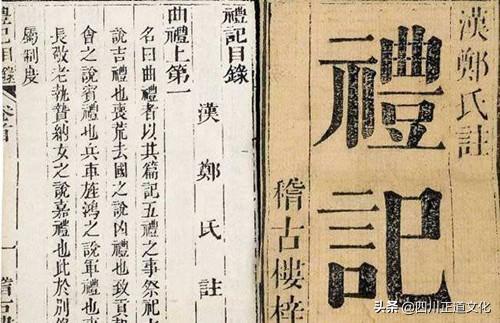 漢鄭氏註
禮記
稽古樓梓
禮記目錄
漢鄭氏註
曲禮上第一
名曰曲禮者以其篇記五禮之事祭祀
說吉禮也喪荒去國之說凶禮也致貢
會之說賓禮也兵車旌鴻之說軍禮也
長敬老執贄納女之說嘉禮也此於別
屬制度
禮記目錄
卷首
一
稽古樓
头条 @四川正道文化